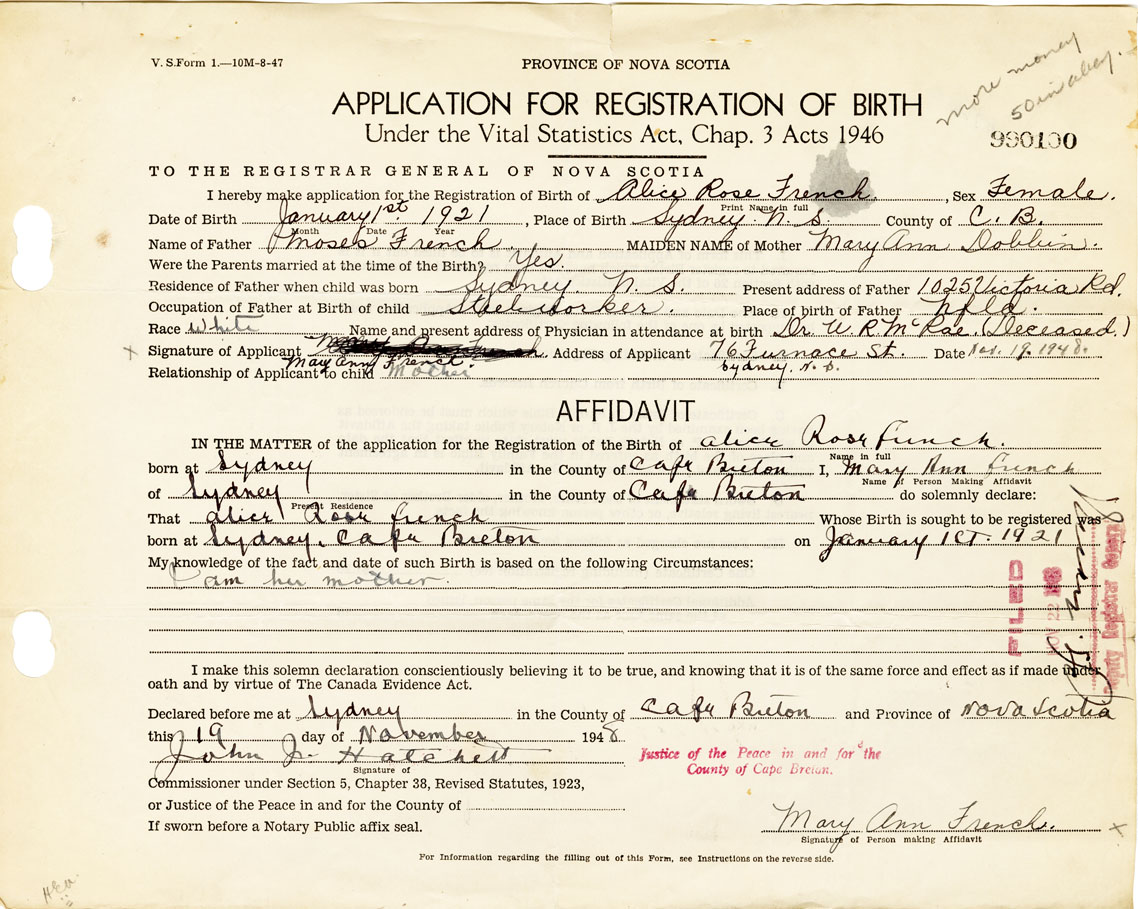 V. S. Form 1.—10M-8-47
PROVINCE OF NOVA SCOTIA
more money
50 in
APPLICATION FOR REGISTRATION OF BIRTH
Under the Vital Statistics Act, Chap. 3 Acts 1946
990100
TO THE REGISTRAR GENERAL OF NOVA SCOTIA
I hereby make application for the Registration of Birth of Alice Rose French, Sex Female.
Print Name in full
Date of Birth January 1st 1921, Place of Birth Sydney N. S. County of C. B.
Month Date Year
Name of Father Moses French. MAIDEN NAME of Mother Mary Ann Dobbin.
Were the Parents married at the time of the Birth? Yes.
Residence of Father when child was born Sydney. N. S. Present address of Father 1025 Victoria Rd.
Occupation of Father at Birth of child Steelworker. Place of birth of Father Nfld.
Race White Name and present address of Physician in attendance at birth Dr. W. R. McRae. (Deceased.)
x Signature of Applicant Address of Applicant 76 Furnace St. Date Nov. 19. 1948.
Mary Ann French. Sydney. N. S.
Relationship of Applicant to child Mother
AFFIDAVIT
IN THE MATTER of the application for the Registration of the Birth of Alice Rose French.
Name in full
born at Sydney in the County of Cape Breton I, Mary Ann French
Name of Person Making Affidavit
of Sydney in the County of Cape Breton do solemnly declare:
Present Residence
That Alice Rose French Whose Birth is sought to be registered was
born at Sydney, Cape Breton on January 1st. 1921
My knowledge of the fact and date of such Birth is based on the following Circumstances:
I am her mother.
FILED
NOV 22 1948
Deputy Registrar General
I make this solemn declaration conscientiously believing it to be true, and knowing that it is of the same force and effect as if made under
oath and by virtue of The Canada Evidence Act.
Declared before me at Sydney in the County of Cape Breton and Province of Nova Scotia
this 19 day of November 1948
John J. Hatchett
Signature of
Justice of the Peace in and for the
County of Cape Breton.
Commissioner under Section 5, Chapter 38, Revised Statutes, 1923,
or Justice of the Peace in and for the County of
If sworn before a Notary Public affix seal.
Mary Ann French. x
Signature of Person making Affidavit
For Information regarding the filling out of this Form, see Instructions on the reverse side.